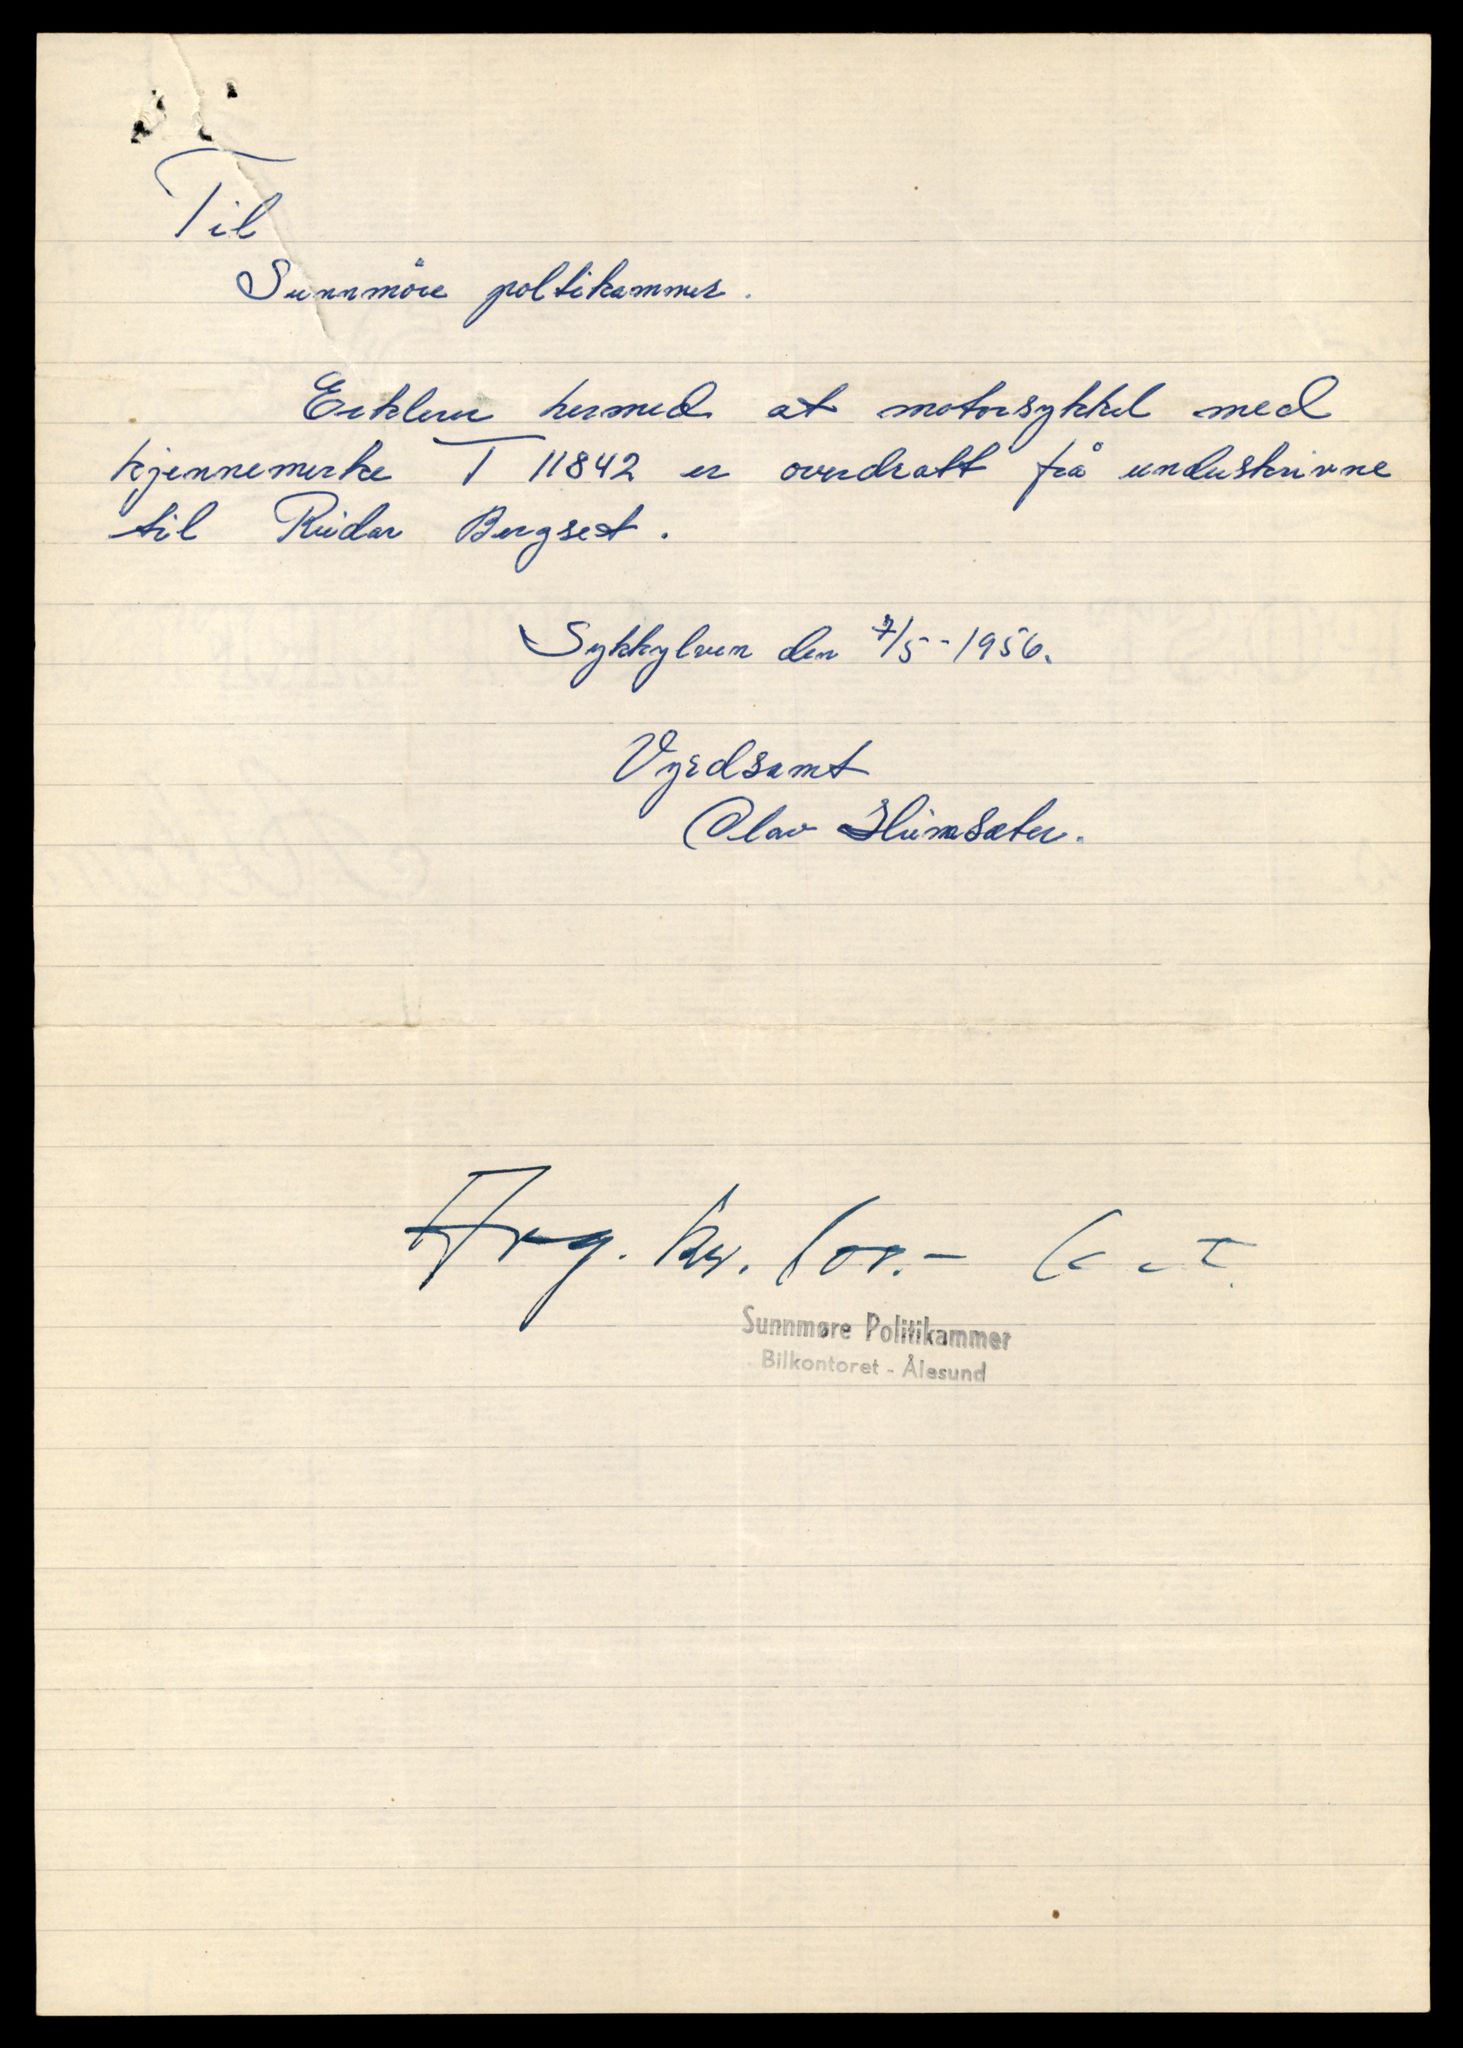 Til
Sunnmöre poltikammer.
Erklerer hermed at motorsykkel med
kjennemerke T 11842 er overdratt frå underskrivne
til Reidar Bergset.
Sykkylven den 7/5-1956.
Vyrdsamt
Olav
kr.
Sunnmøre Politikammer
Bilkontoret - Ålesund